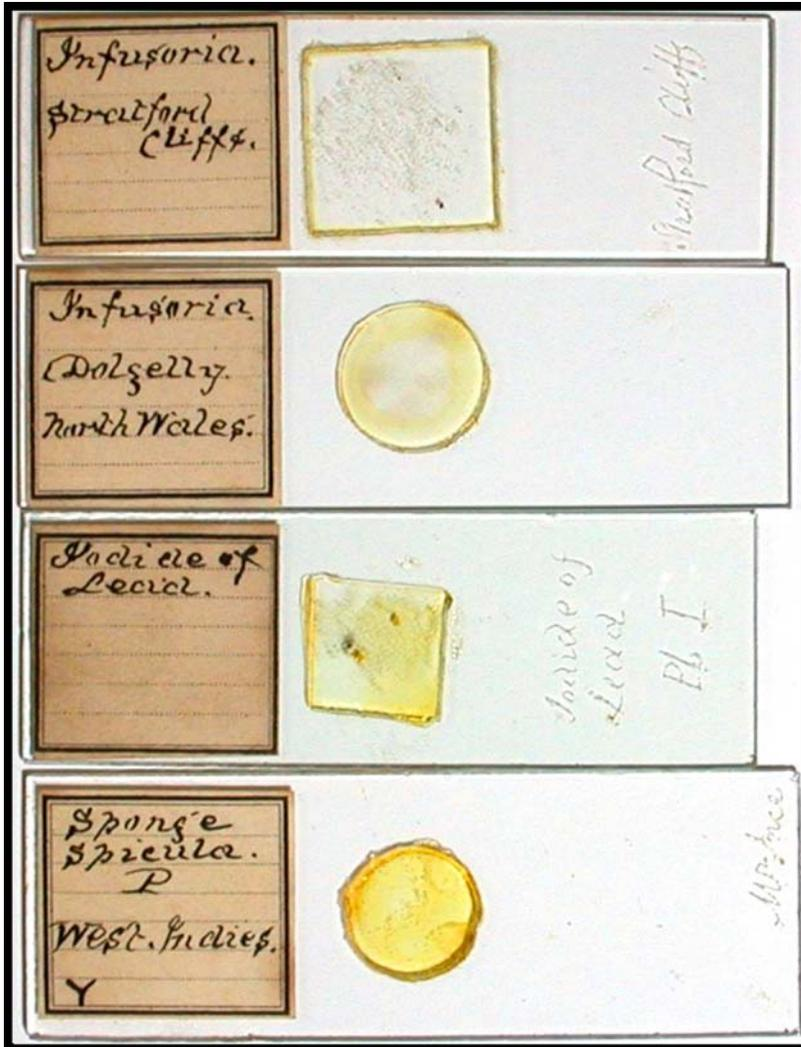 Infusoria.
Stratford
Cliffs.
Stratford Cliffs
Infusoria.
Dolgelly.
North Wales.
Iodide of
Lead.
Iodide of
Lead
Pb I
Sponge
Spicula.
P
West. Indies.
Y